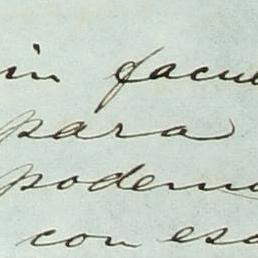 in facul
para
podemo
con esa